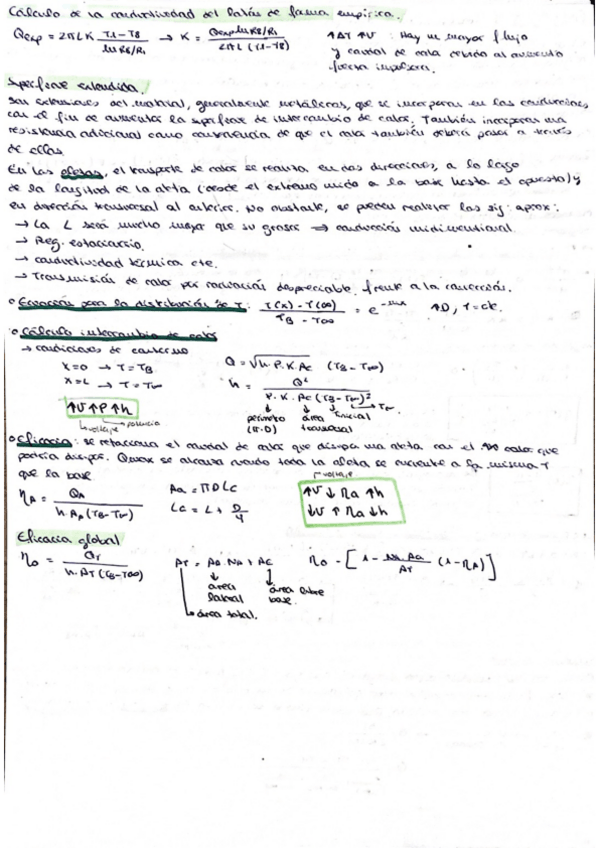 Cálculo de la conductividad del latón de forma empírica.
Qexp = 2πLK (T1-T8)/(ln R8/R1) → K = (Qexp ln R8/R1)/(2πL(T1-T8)) ↑ΔT ↑V : Hay un mayor flujo
y caudal de calor debido al aumento
fuerza impulsora.
Superficie extendida.
Son extensiones del material, generalmente metálicas, que se incorporan en las conducciones
con el fin de aumentar la superficie de intercambio de calor. También incorporan una
resistencia adicional como consecuencia de que el calor también deberá pasar a través
de ellas.
En las aletas, el transporte de calor se realiza en dos direcciones, a lo largo
de la longitud de la aleta (desde el extremo unido a la base hasta el opuesto) y
en dirección transversal al anterior. No obstante, se pueden realizar las sig: aprox:
→ La L será mucho mayor que su grosor ⇒ conducción unidimensional.
→ Reg. estacionario.
→ conductividad térmica cte.
→ Transmisión de calor por radiación despreciable frente a la convección.
° Ecuación para la distribución de T: (T(x) - T(∞))/(TB - T∞) = e^-mx ↑D, T=cte.
° Cálculo intercambio de calor
→ condiciones de contorno Q = √h.P.K.Ac (TB - T∞)
x=0 → T=TB
x=L → T=T∞ h = Q²/(P.K.Ac(TB-T∞)²)
↑V ↑P ↑h perímetro (π.D) área transversal inicial T∞
voltaje potencia
° Eficacia: se relaciona el caudal de calor que disipa una aleta con el calor que
podría disipar. Qmax se alcanza cuando toda la aleta se encuentre a la misma T
que la base voltaje
ηA = QA/(h.Aa(TB-T∞)) Aa = πDLc ↑V ↓ηa ↑h
Lc = L + D/4 ↓V ↑ηa ↓h
Eficacia global
ηo = QT/(h.AT(TB-T∞)) AT = Aa.Na + AE ηo = [1 - (Na.Aa)/AT (1-ηA)]
área lateral área libre base.
área total.